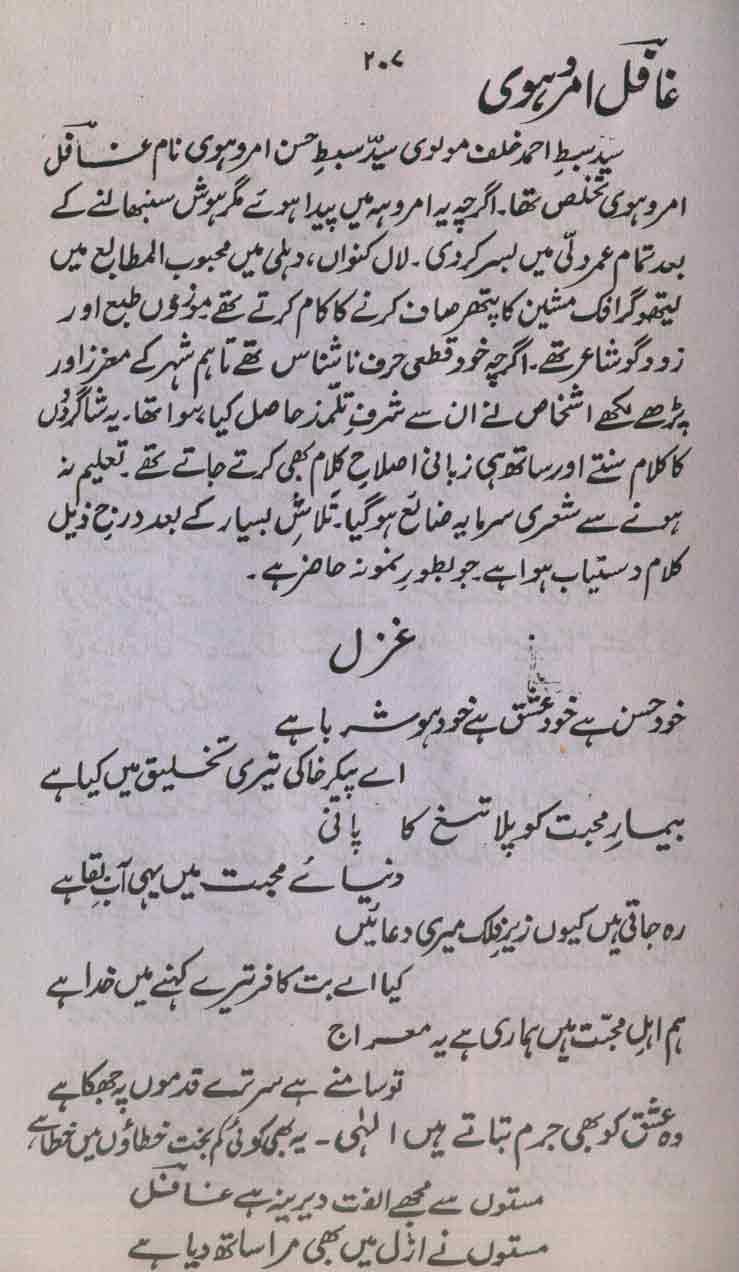 ۲۰۷
غافل امروہوی
سید سبطِ احمد خلف مولوی سیّد سبطِ حسن امروہوی نام غافل
امروہوی تخلص تھا۔ اگرچہ یہ امروہہ میں پیدا ہوئے مگر ہوش سنبھالنے کے
بعد تمام عمر دلّی میں بسر کر دی۔ لال کنواں، دہلی میں محبوب المطابع میں
لیتھوگرافک مشین کا پتھر صاف کرنے کا کام کرتے تھے موزوں طبع اور
زود گو شاعر تھے۔ اگرچہ خود قطعی حرف نا شناس تھے تاہم شہر کے معزز اور
پڑھے لکھے اشخاص نے ان سے شرفِ تلمّذ حاصل کیا ہوا تھا۔ یہ شاگردوں
کا کلام سنتے اور ساتھ ہی زبانی اصلاحِ کلام بھی کرتے جاتے تھے۔ تعلیم نہ
ہونے سے شعری سرمایہ ضائع ہوگیا۔ تلاشِ بسیار کے بعد درج ذیل
کلام دستیاب ہوا ہے۔ جو بطورِ نمونہ حاضر ہے۔
غزل
خود حسن ہے خود عشق ہے خود ہوش ربا ہے
اے پیکرِ خاکی تیری تخلیق میں کیا ہے
بیمارِ محبت کو پلا تیغ کا پانی
دنیائے محبت میں یہی آبِ بقا ہے
رہ جاتی ہیں کیوں زیرِ فلک میری دعائیں
کیا اے بت کافر تیرے کہنے میں خدا ہے
ہم اہلِ محبّت ہیں ہماری ہے یہ معراج
تو سامنے ہے سر ترے قدموں پہ جھکا ہے
وہ عشق کو بھی جرم بتاتے ہیں الٰہی ۔ یہ بھی کوئی کم بخت خطاؤں میں خطا ہے
مستوں سے مجھے الفت دیرینہ ہے غافل
مستوں نے ازل میں بھی مرا ساتھ دیا ہے